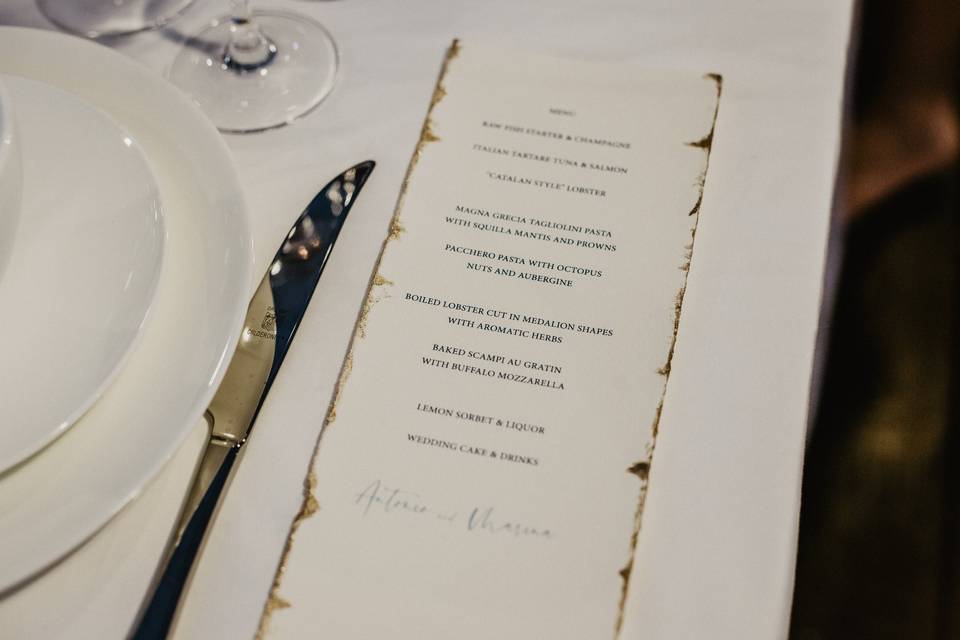 MENU
RAW FISH STARTER & CHAMPAGNE
ITALIAN TARTARE TUNA & SALMON
"CATALAN STYLE" LOBSTER
MAGNA GRECIA TAGLIOLINI PASTA
WITH SQUILLA MANTIS AND PROWNS
PACCHERO PASTA WITH OCTOPUS
NUTS AND AUBERGINE
BOILED LOBSTER CUT IN MEDALION SHAPES
WITH AROMATIC HERBS
BAKED SCAMPI AU GRATIN
WITH BUFFALO MOZZARELLA
LEMON SORBET & LIQUOR
WEDDING CAKE & DRINKS
Antonio and Marina